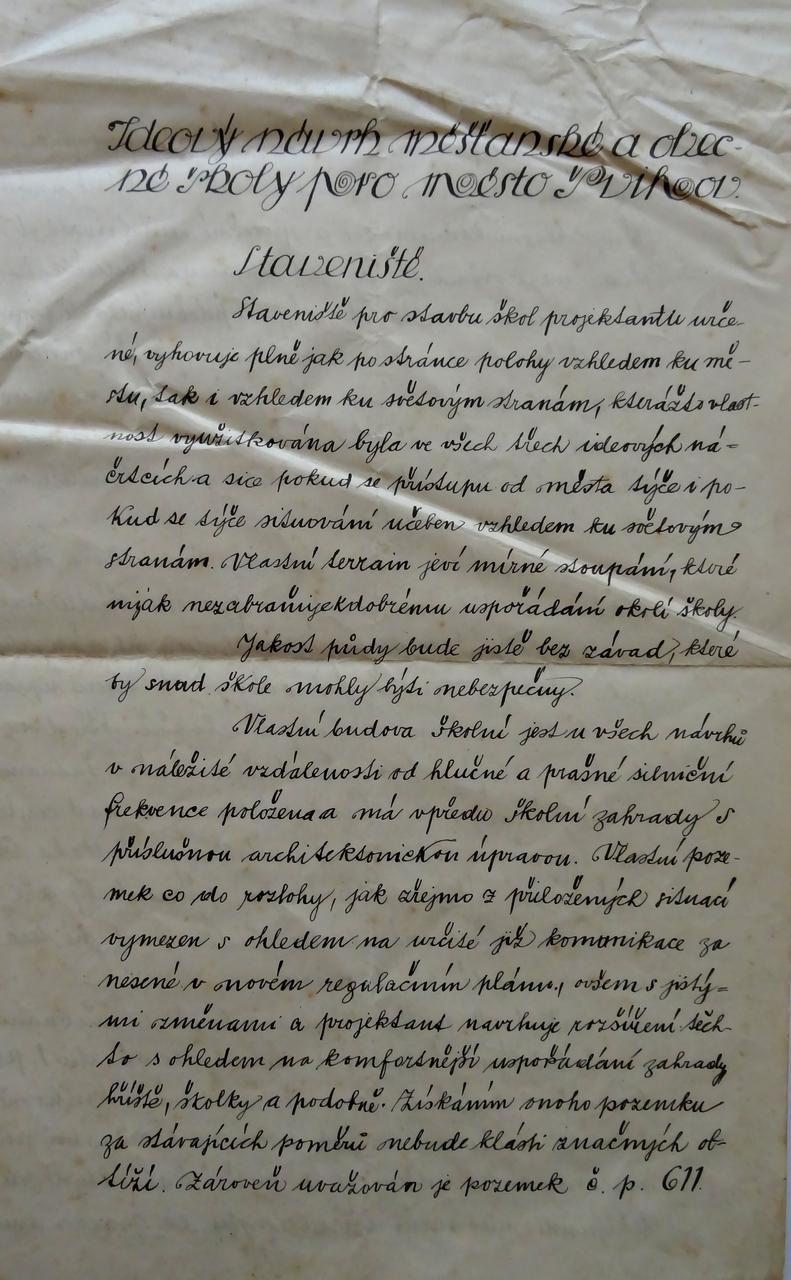 Ideový návrh měšťanské a obec-
né školy pro město Švihov.
Staveniště.
Staveniště pro stavbu škol projektantu urče-
né, vyhovuje plně jak po stránce polohy vzhledem ku mě-
stu, tak i vzhledem ku světovým stranám, kterážto vlast-
nost využitkována byla ve všech třech ideových ná-
črtcích a sice pokud se přístupu od města týče i po-
kud se týče situování učeben vzhledem ku světovým
stranám. Vlastní terrain jeví mírné stoupání, které
nijak nezabraňuje k dobrému uspořádání okolí školy.
Jakost půdy bude jistě bez závad, které
by snad škole mohly býti nebezpečny.
Vlastní budova školní jest u všech návrhů
v náležité vzdálenosti od hlučné a prašné silniční
frekvence položena a má vpředu školní zahrady s
příslušnou architektonickou úpravou. Vlastní poze-
mek co do rozlohy, jak zřejmo z přiložených situací
vymezen s ohledem na určité již komunikace za
nesené v novém regulačním plánu, ovšem s jistý-
mi změnami a projektant navrhuje rozšíření těch-
to s ohledem na komfortnější uspořádání zahrady
hřiště, školky a podobně. Získáním onoho pozemku
za stávajících poměrů nebude klásti značných ob-
tíží. Zároveň uvažován je pozemek č. p. 611.